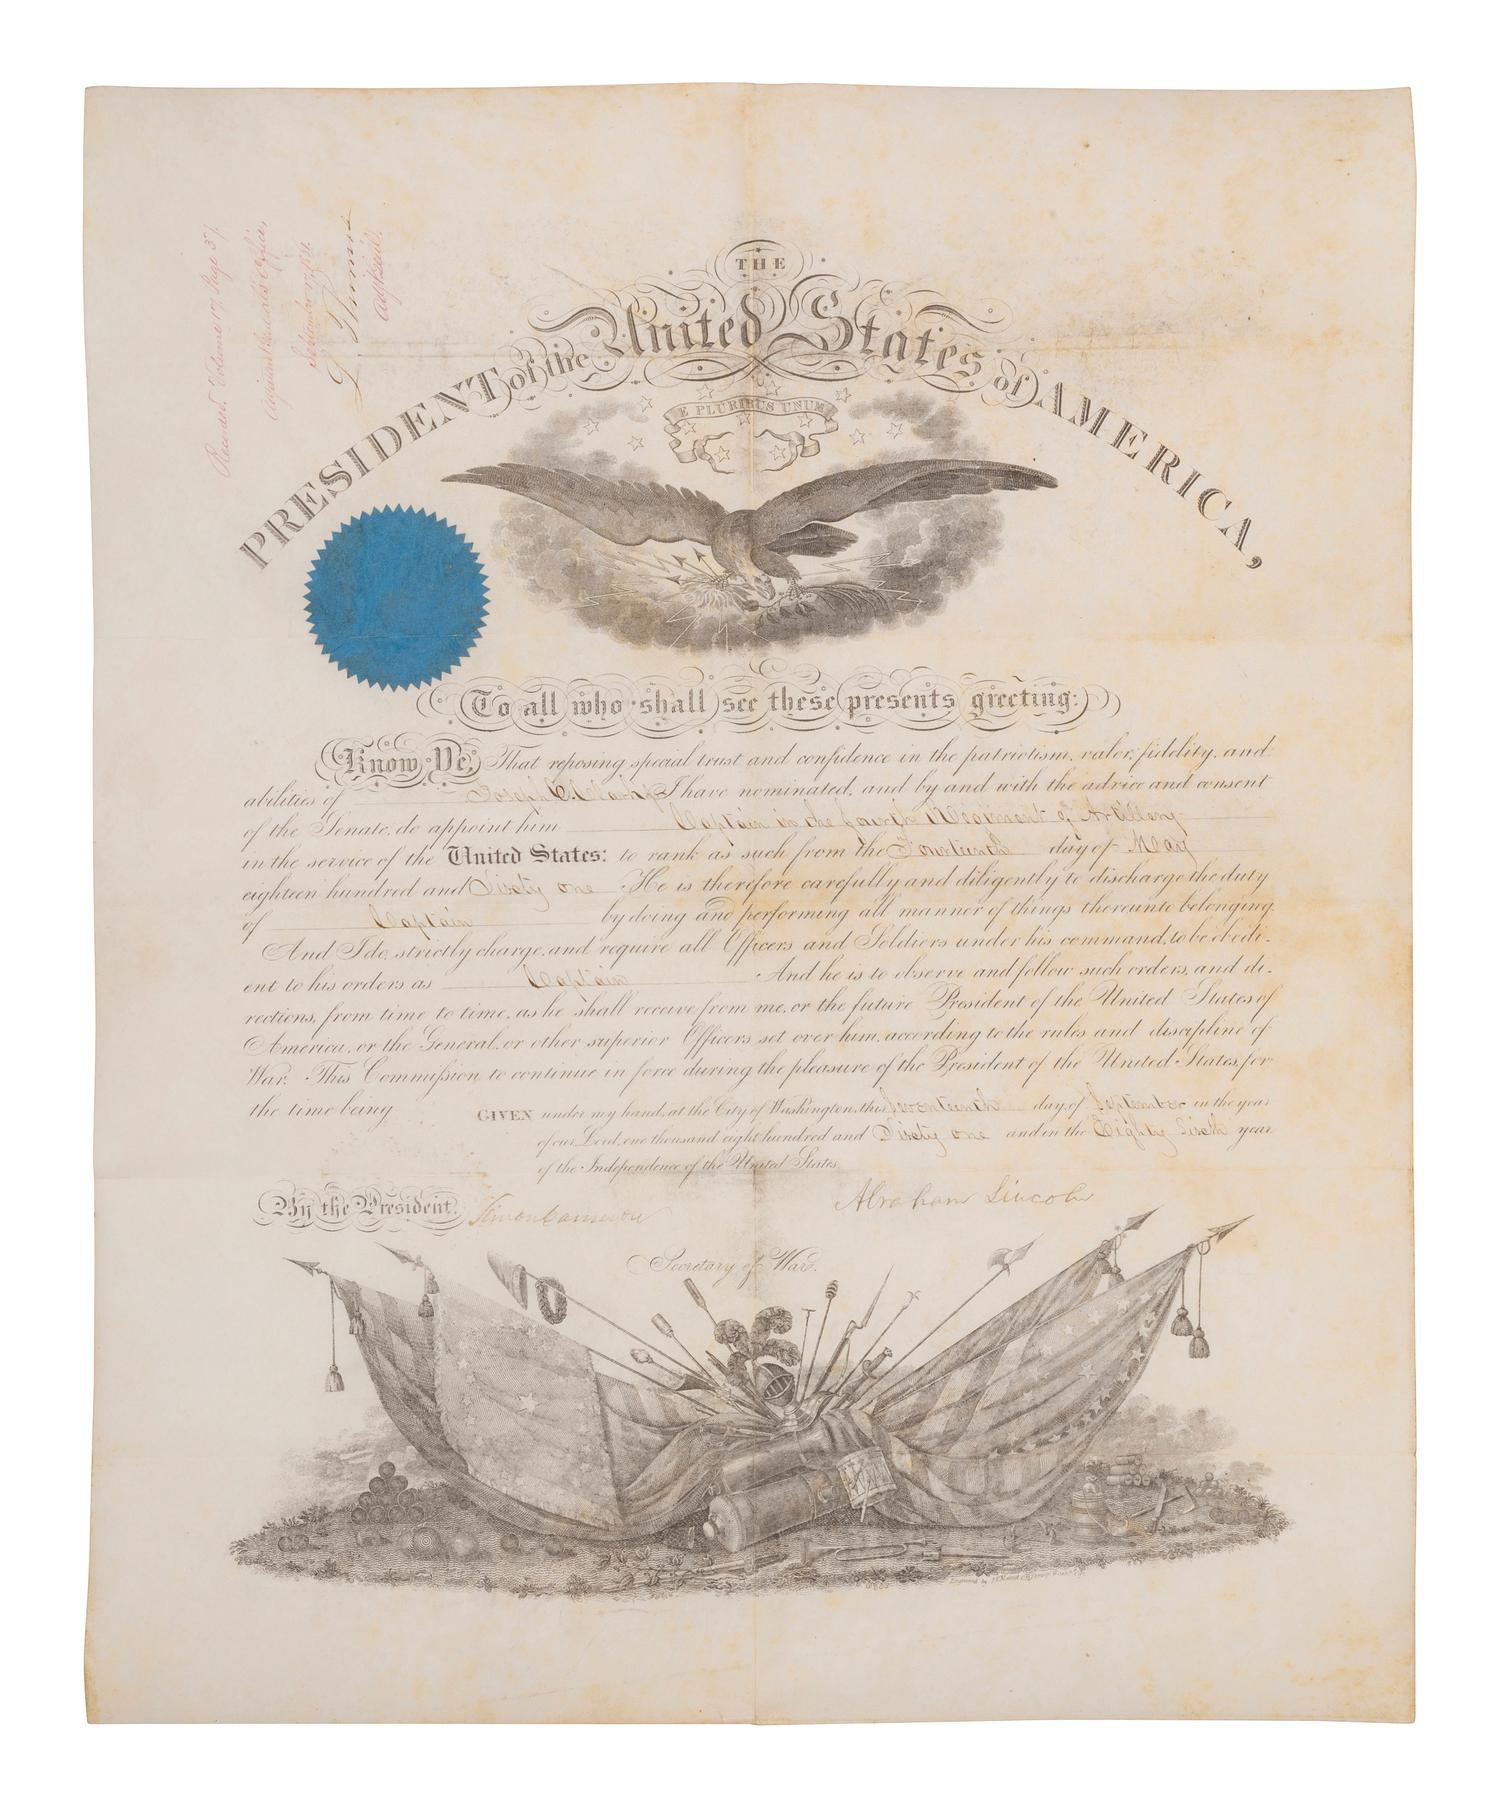 Recorded, Volume 17, Page 37,
Adjutant General's Office,
September 17, 1861.
L. Thomas
Adjt. Genl.
THE
PRESIDENT of the United States of AMERICA,
E PLURIBUS UNUM
To all who shall see these presents greeting:
Know Ye, That reposing special trust and confidence in the patriotism, valor, fidelity, and
abilities of Joseph C. Clark Jr I have nominated, and by and with the advice and consent
of the Senate, do appoint him Captain in the fourth Regiment of Artillery
in the service of the United States: to rank as such from the Fourteenth day of May
eighteen hundred and Sixty one He is therefore carefully and diligently to discharge the duty
of Captain by doing and performing all manner of things thereunto belonging.
And I do, strictly charge, and require all Officers and Soldiers under his command, to be obedi-
ent to his orders as Captain And he is to observe and follow such orders, and di-
rections, from time to time, as he shall receive from me, or the future President of the United States of
America, or the General, or other superior Officers set over him, according to the rules and discipline of
War. This Commission to continue in force during the pleasure of the President of the United States, for
the time being
GIVEN under my hand, at the City of Washington, this Seventeenth day, of September in the year
of our Lord, one thousand eight hundred and Sixty one and in the Eighty Sixth year
of the Independence of the United States.
Abraham Lincoln
By the President, Simon Cameron
Secretary of War.
Engraved by